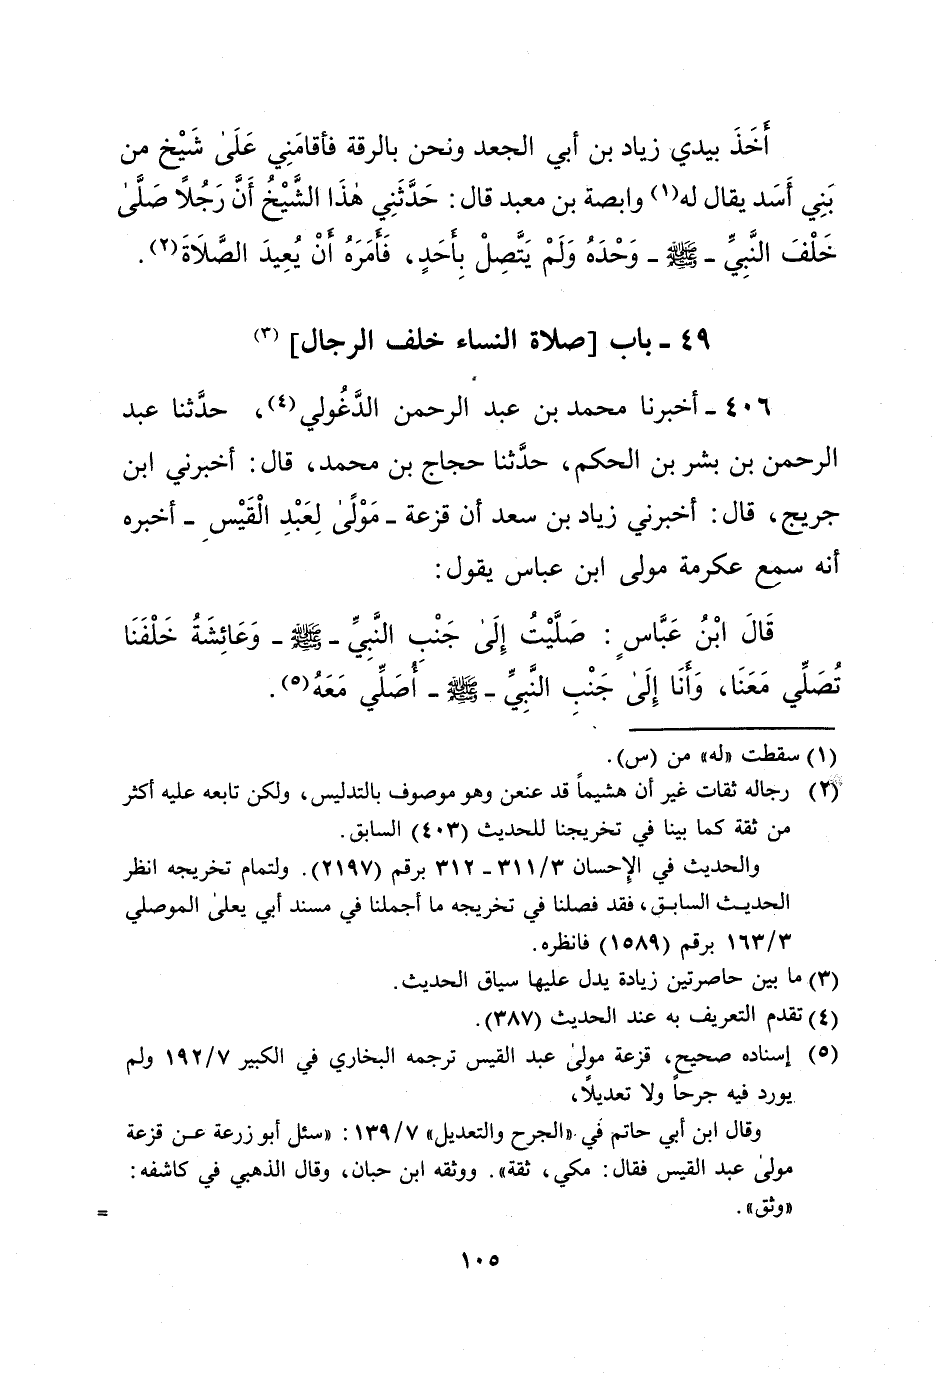 أَخَذَ بيدي زياد بن أبي الجعد ونحن بالرقة فأقامَنِي عَلَىٰ شَيْخ من
بَنِي أَسَد يقال له(١) وابصة بن معبد قال: حَدَّثَنِي هٰذَا الشَّيْخُ أَنَّ رَجُلًا صَلَّىٰ
خَلْفَ النَّبِيِّ ـ ﷺ ـ وَحْدَهُ وَلَمْ يَتَّصِلْ بِأَحَدٍ، فَأَمَرَهُ أَنْ يُعِيدَ الصَّلَاةَ(٢).
٤٩ ـ باب [صلاة النساء خلف الرجال](٣)
٤٠٦ ـ أخبرنا محمد بن عبد الرحمن الدَّغُولي(٤)، حدَّثنا عبد
الرحمن بن بشر بن الحكم، حدَّثنا حجاج بن محمد، قال: أخبرني ابن
جريج، قال: أخبرني زياد بن سعد أن قزعة ـ مَوْلًىٰ لِعَبْدِ الْقَيْسِ ـ أخبره
أنه سمع عكرمة مولى ابن عباس يقول:
قَالَ ابْنُ عَبَّاسٍ: صَلَّيْتُ إِلَىٰ جَنْبِ النَّبِيِّ ـ ﷺ ـ وَعَائِشَةُ خَلْفَنَا
تُصَلِّي مَعَنَا، وَأَنَا إِلَىٰ جَنْبِ النَّبِيِّ ـ ﷺ ـ أُصَلِّي مَعَهُ(٥).
(١) سقطت «له» من (س).
(٢) رجاله ثقات غير أن هشيماً قد عنعن وهو موصوف بالتدليس، ولكن تابعه عليه أكثر
من ثقة كما بينا في تخريجنا للحديث (٤٠٣) السابق.
والحديث في الإحسان ٣/٣١١ ـ ٣١٢ برقم (٢١٩٧). ولتمام تخريجه انظر
الحديث السابق، فقد فصلنا في تخريجه ما أجملنا في مسند أبي يعلىٰ الموصلي
٣/١٦٣ برقم (١٥٨٩) فانظره.
(٣) ما بين حاصرتين زيادة يدل عليها سياق الحديث.
(٤) تقدم التعريف به عند الحديث (٣٨٧).
(٥) إسناده صحيح، قزعة مولىٰ عبد القيس ترجمه البخاري في الكبير ٧/١٩٢ ولم
يورد فيه جرحاً ولا تعديلاً،
وقال ابن أبي حاتم في «الجرح والتعديل» ٧/١٣٩: «سئل أبو زرعة عن قزعة
مولىٰ عبد القيس فقال: مكي، ثقة». ووثقه ابن حبان، وقال الذهبي في كاشفه:
«وثق».
=
١٠٥